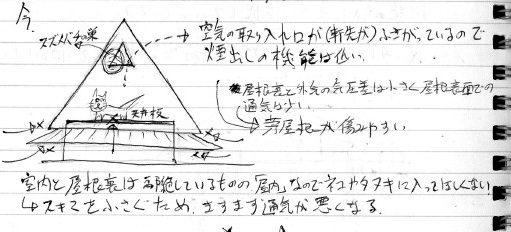 今、
スズメバチの巣
空気の取り入れ口が(軒先が)ふさがっているので
煙出しの機能は低い。
屋根裏と外気の気圧差は小さく屋根表面での
通気は少い
→ 茅屋根が傷みやすい
天井板
室内と屋根裏は しているものの「屋内」なのでネコやタヌキに入ってほしくない。
↳ スキマをふさぐため、ますます通気が悪くなる。